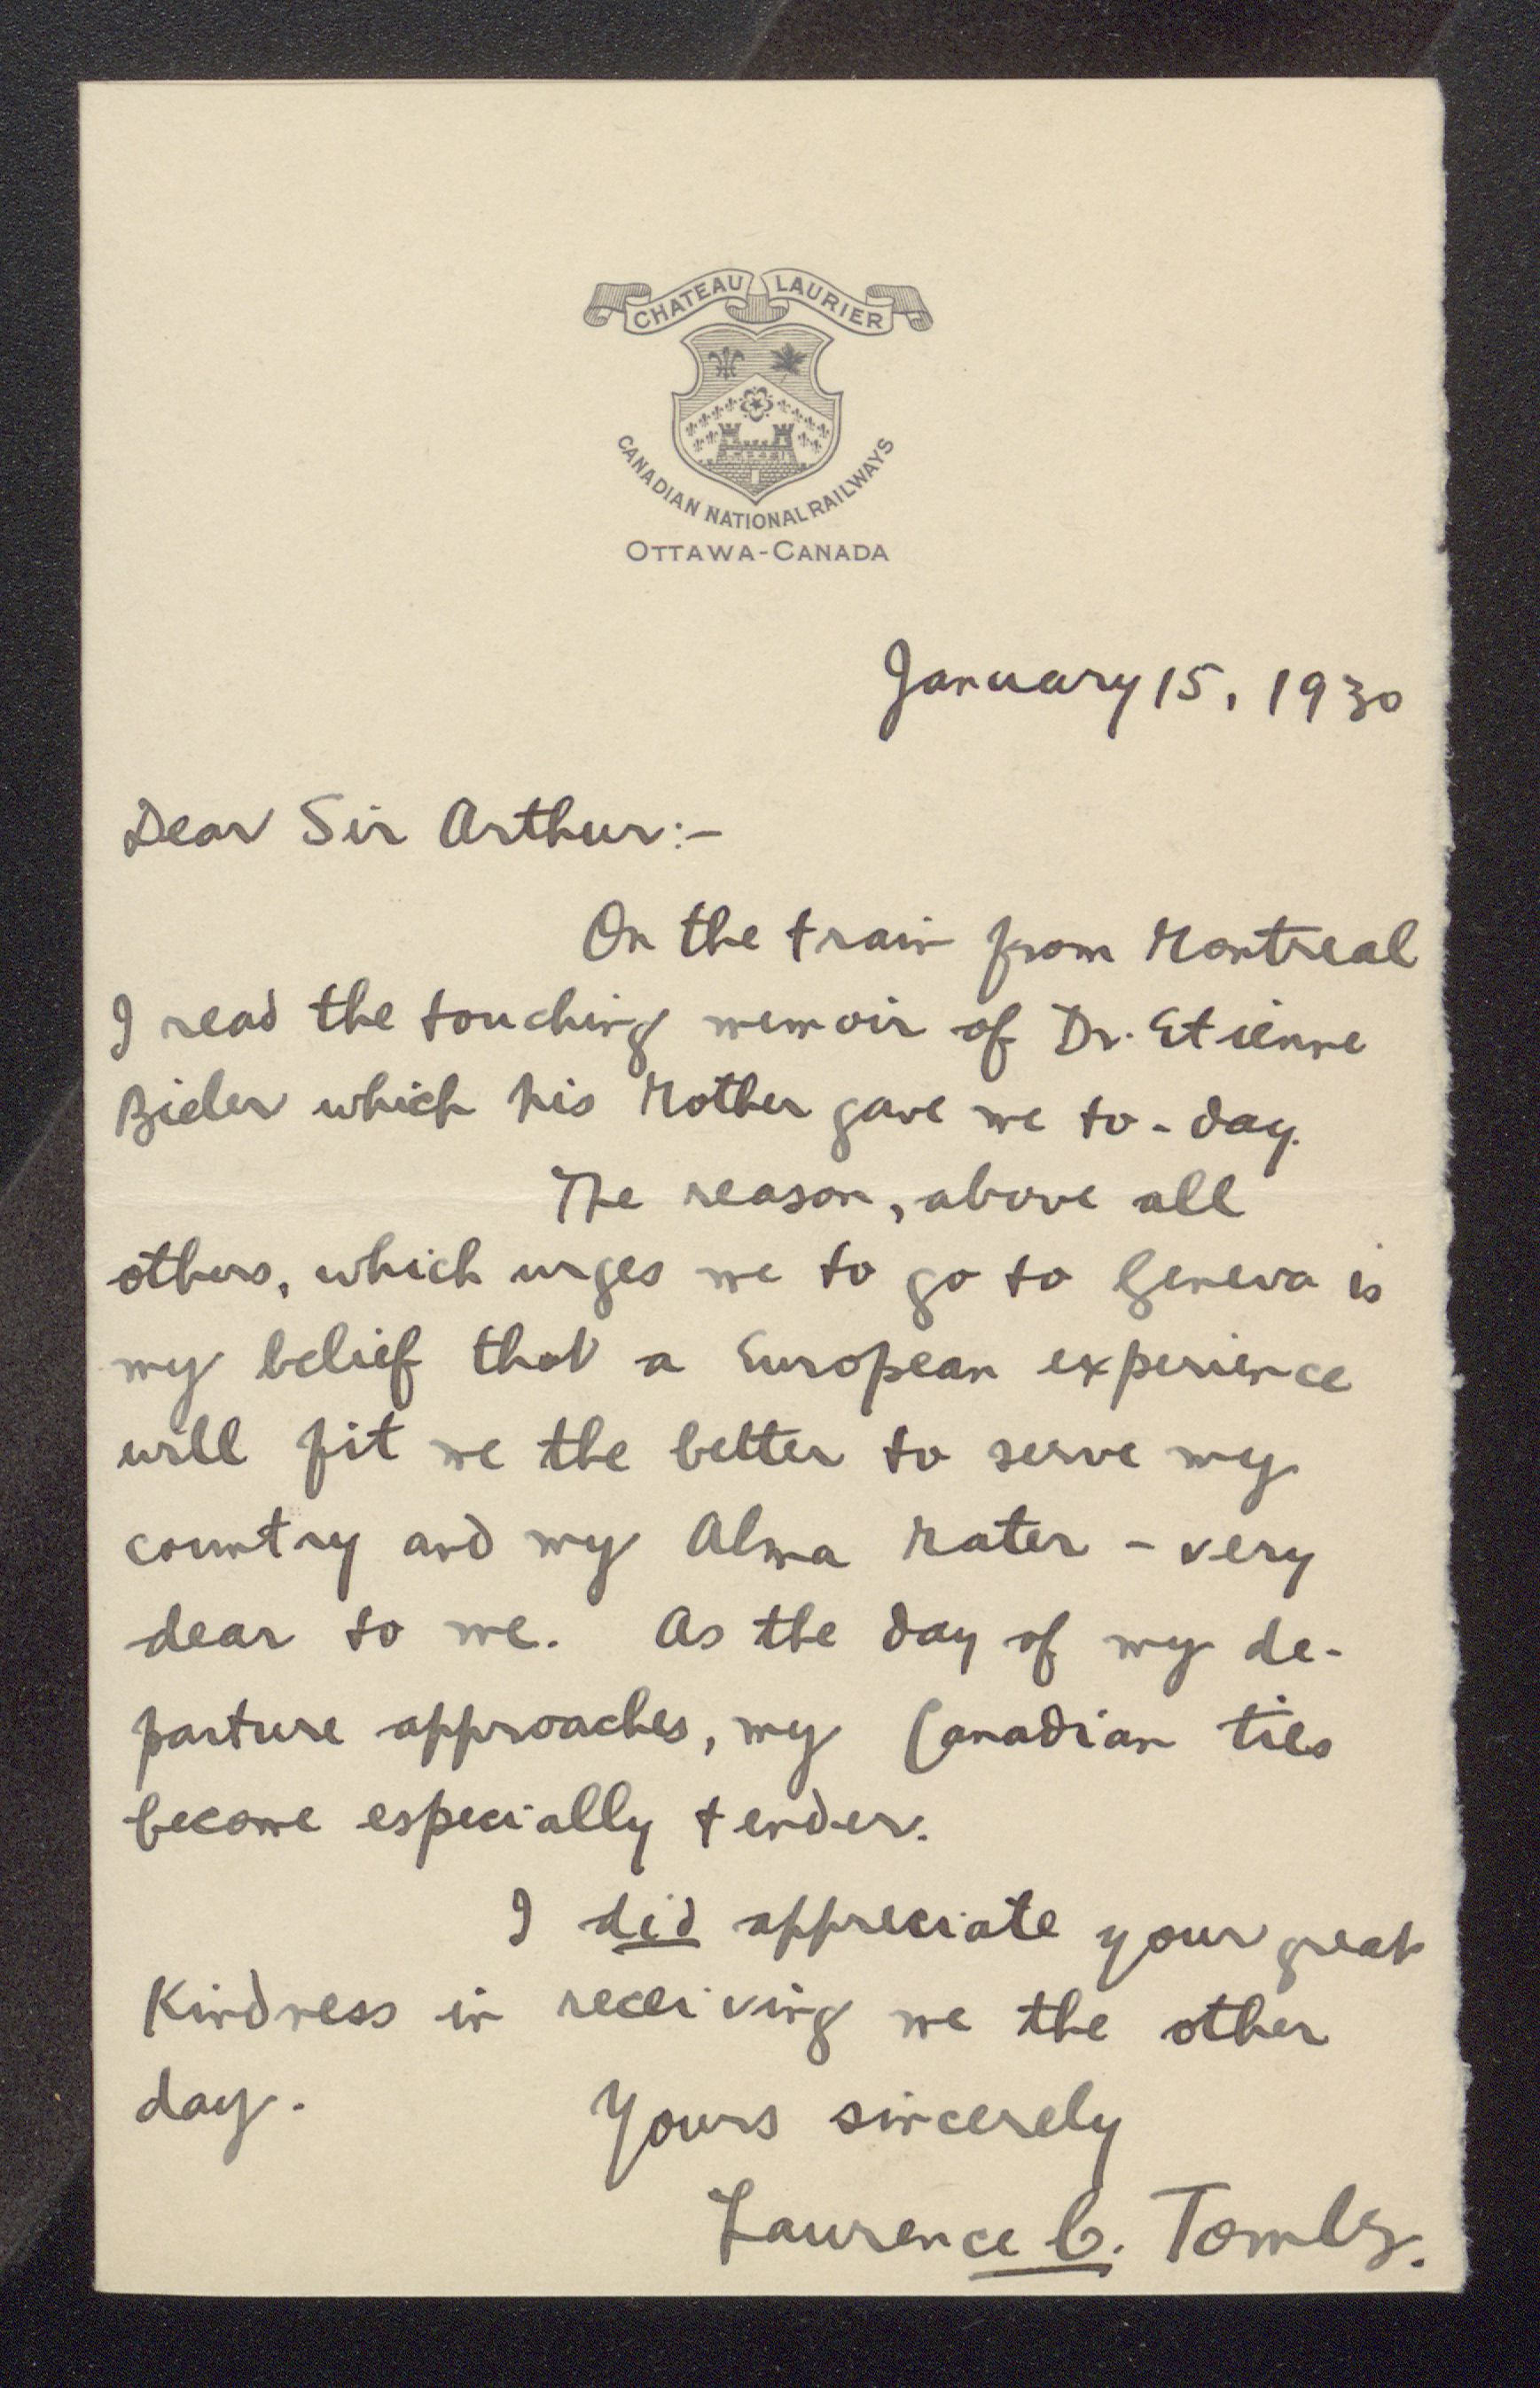 CHATEAU LAURIER
CANADIAN NATIONAL RAILWAYS
OTTAWA-CANADA
January 15, 1930
Dear Sir Arthur:-
On the train from Montreal
I read the touching memoir of Dr. Etienne
Bieler which his Mother gave me to-day.
The reason, above all
others, which urges me to go to Geneva is
my belief that a European experience
will fit me the better to serve my
country and my Alma Mater - very
dear to me. As the day of my de-
parture approaches, my Canadian ties
become especially tender.
I did appreciate your great
Kindness in receiving me the other
day.
Yours sincerely
Laurence C. Tombs.